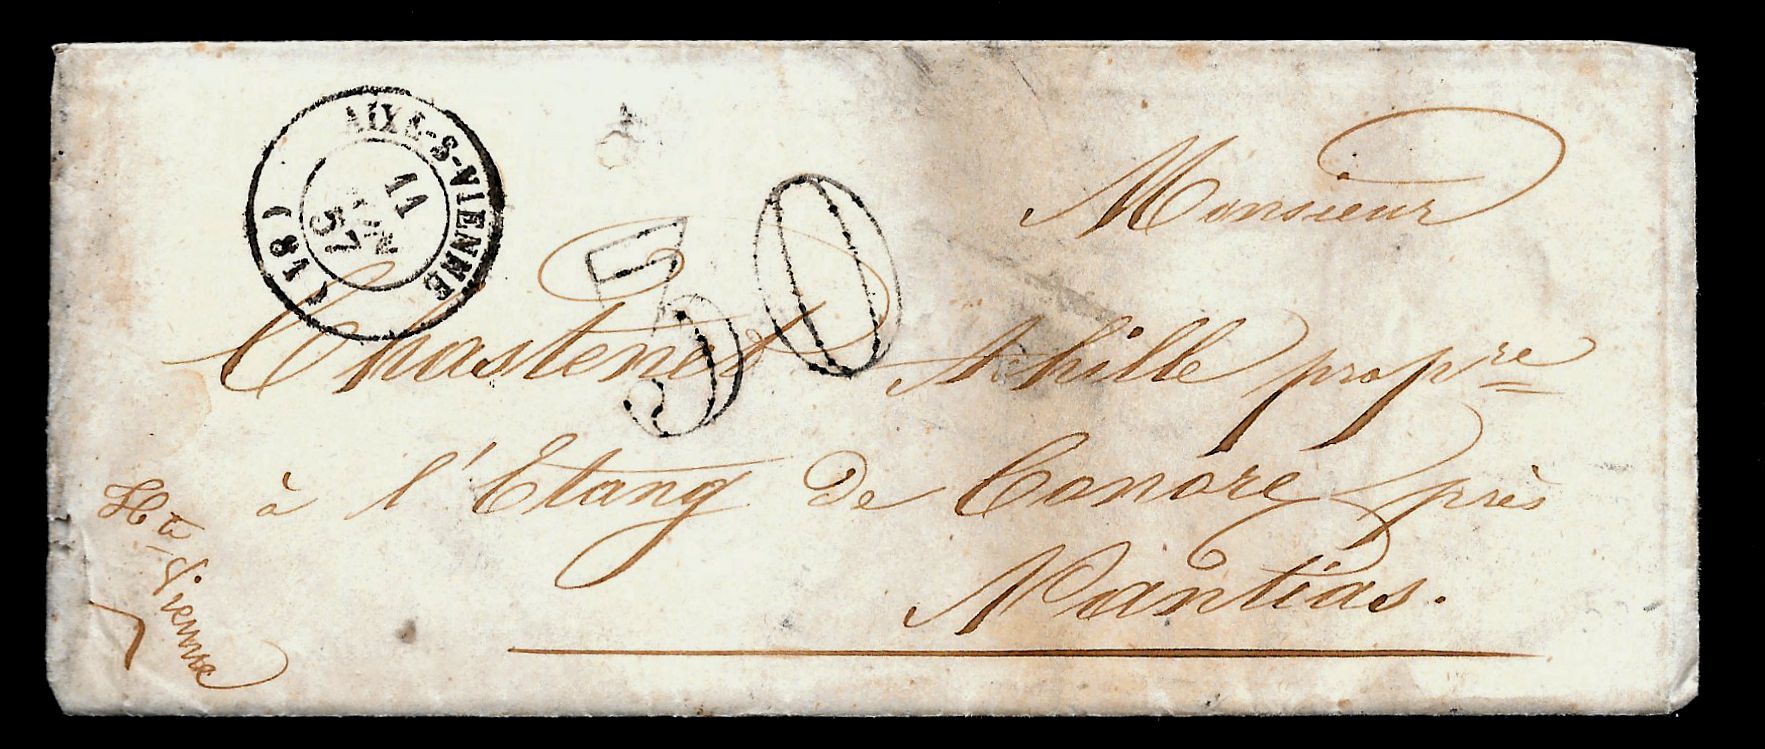 AIXE-S-VIENNE
11
JUIN
57
(81)
30
Monsieur
Chastenet Achille propre
à l'Etang de Conore près
Nantias.
Hte Vienne